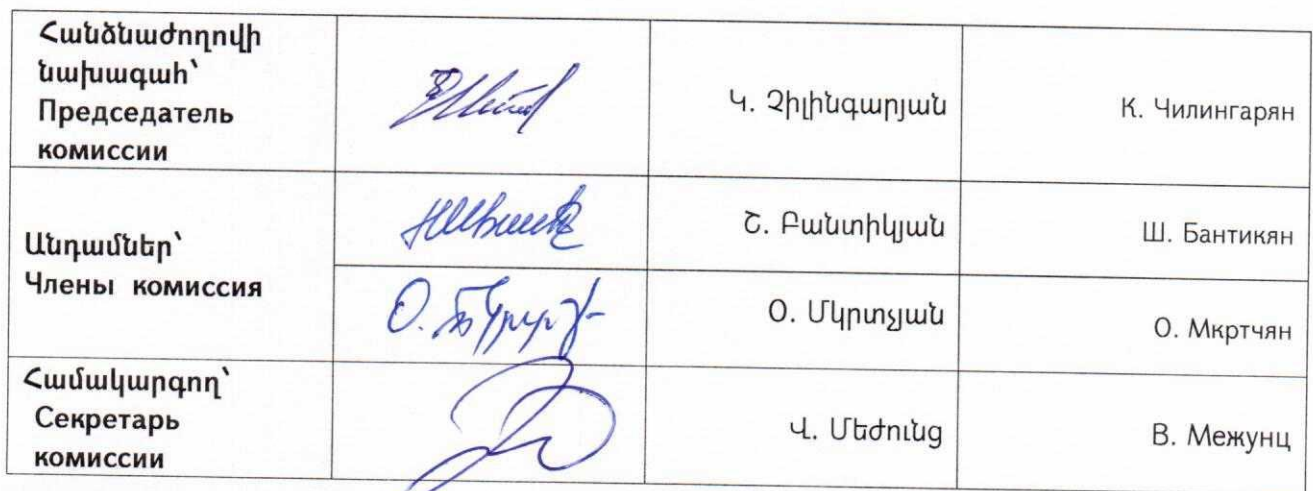 Հանձնաժողովի
նախագահ՝
Председатель
комиссии
Կ. Չիլինգարյան
К. Чилингарян
Անդամներ՝
Члены комиссия
Շ. Բանտիկյան
Ш. Бантикян
Օ. Մկրտչյան
О. Мкртчян
Համակարգող՝
Секретарь
комиссии
Վ. Մեժունց
В. Межунц